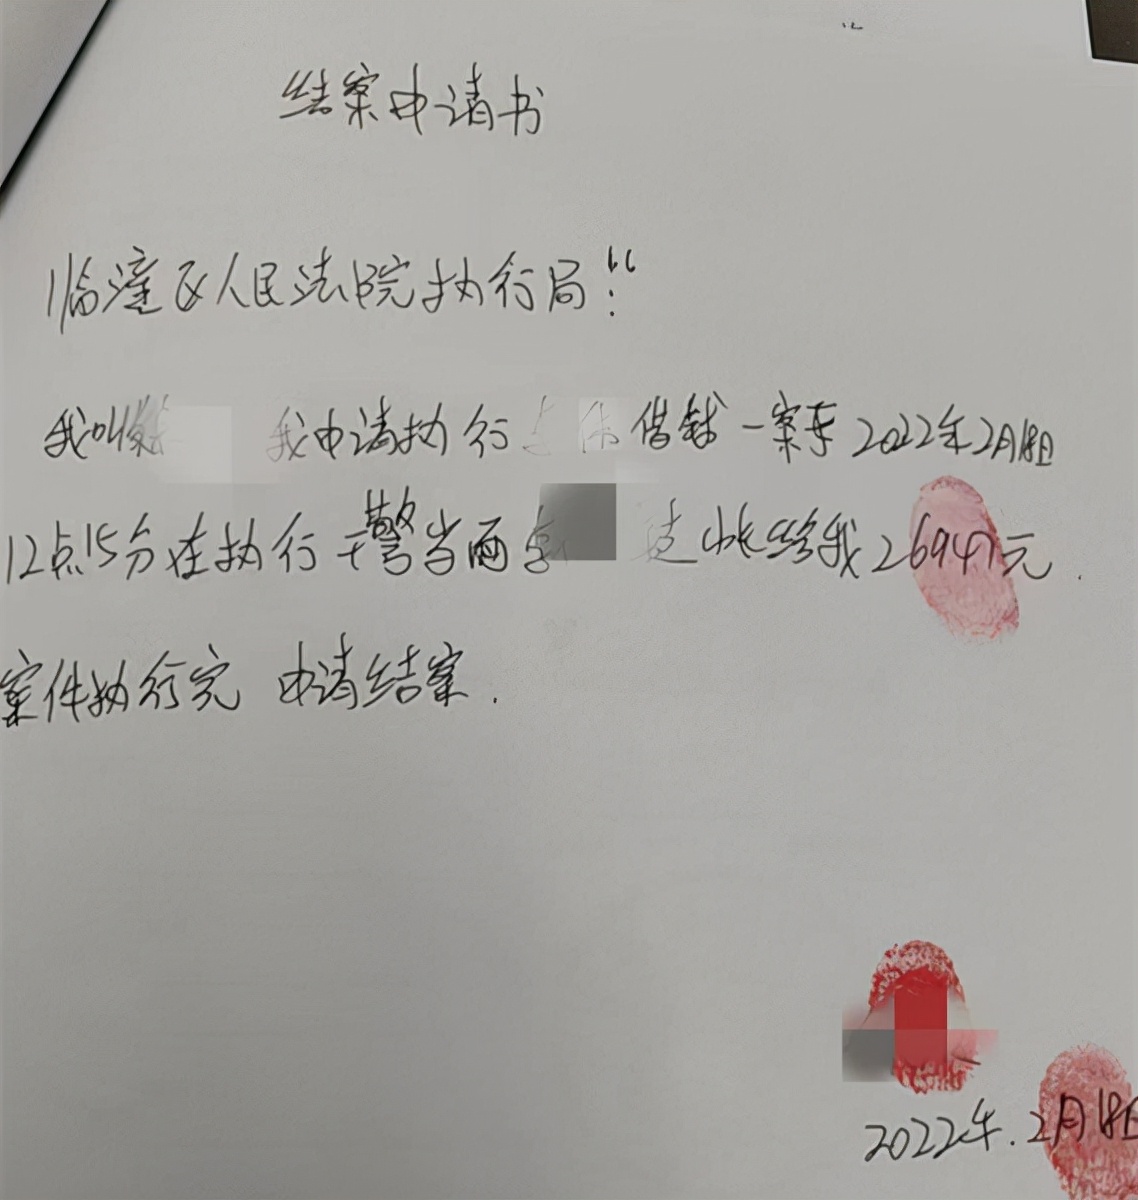 结案申请书
临潼区人民法院执行局：
我叫 我申请执行 借款一案于2022年2月18日
12点15分在执行干警当面 转账给我26947元.
案件执行完 申请结案.
2022年.2月18日